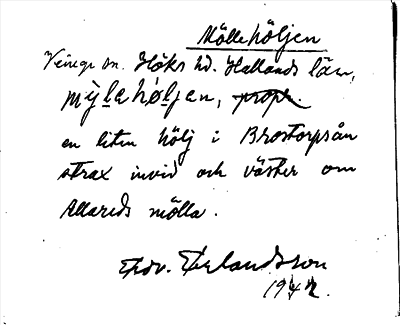 Möllehöljen
Veinge sn. Höks hd. Hallands län,
mỳlehøljen, propr.
en liten hölj i Brostorpsån
strax invid och väster om
Allareds mölla.
Edv. Erlandsson
1942.